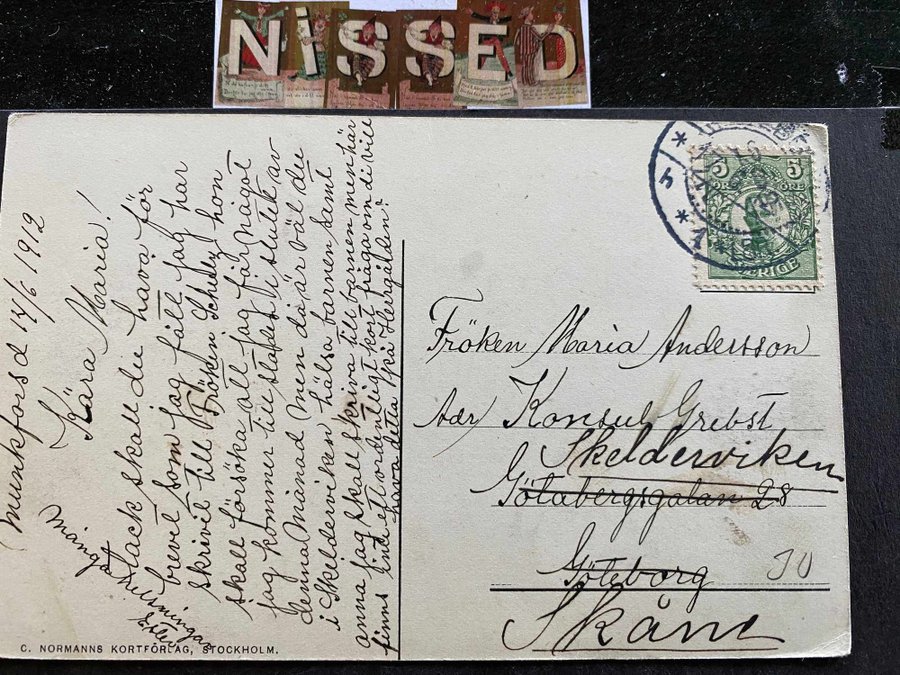 NISSED
Munkforsd 17/6 1912
Kära Maria!
Tack skall du hava för
brevet som jag fått jag har
skrivit till Fröken Scheley hon
skall försöka att jag får något
jag kommer till stapeln i slutet av
denna månad men då är väl du
i Skelderviken hälsa barnen samt
anna jag skall skriva till barnen men här
finns inte et ordentligt kort fråga om di vill
hava detta på Hergården?
Många helsningar
Ester
C. NORMANNS KORTFÖRLAG, STOCKHOLM.
5 5
ÖRE ÖRE
SVERIGE
Fröken Maria Andersson
Adr Konsul Grebst
Skelderviken
Götabergsgatan 28
Göteborg
Skåne